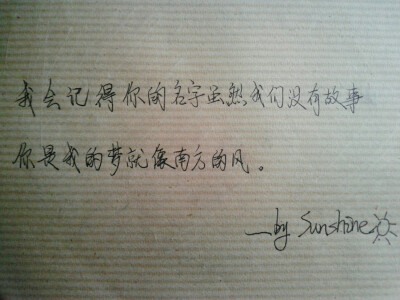 我会记得你的名字虽然我们没有故事
你是我的梦就像南方的风。
—by Sunshine